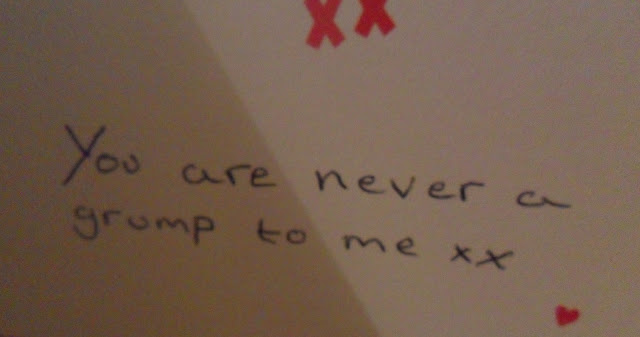 xx
You are never a
grump to me xx